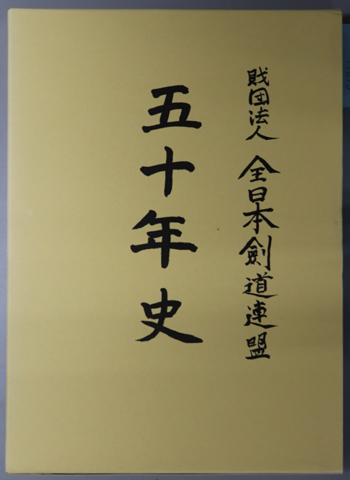 財団法人 全日本剣道連盟
五十年史